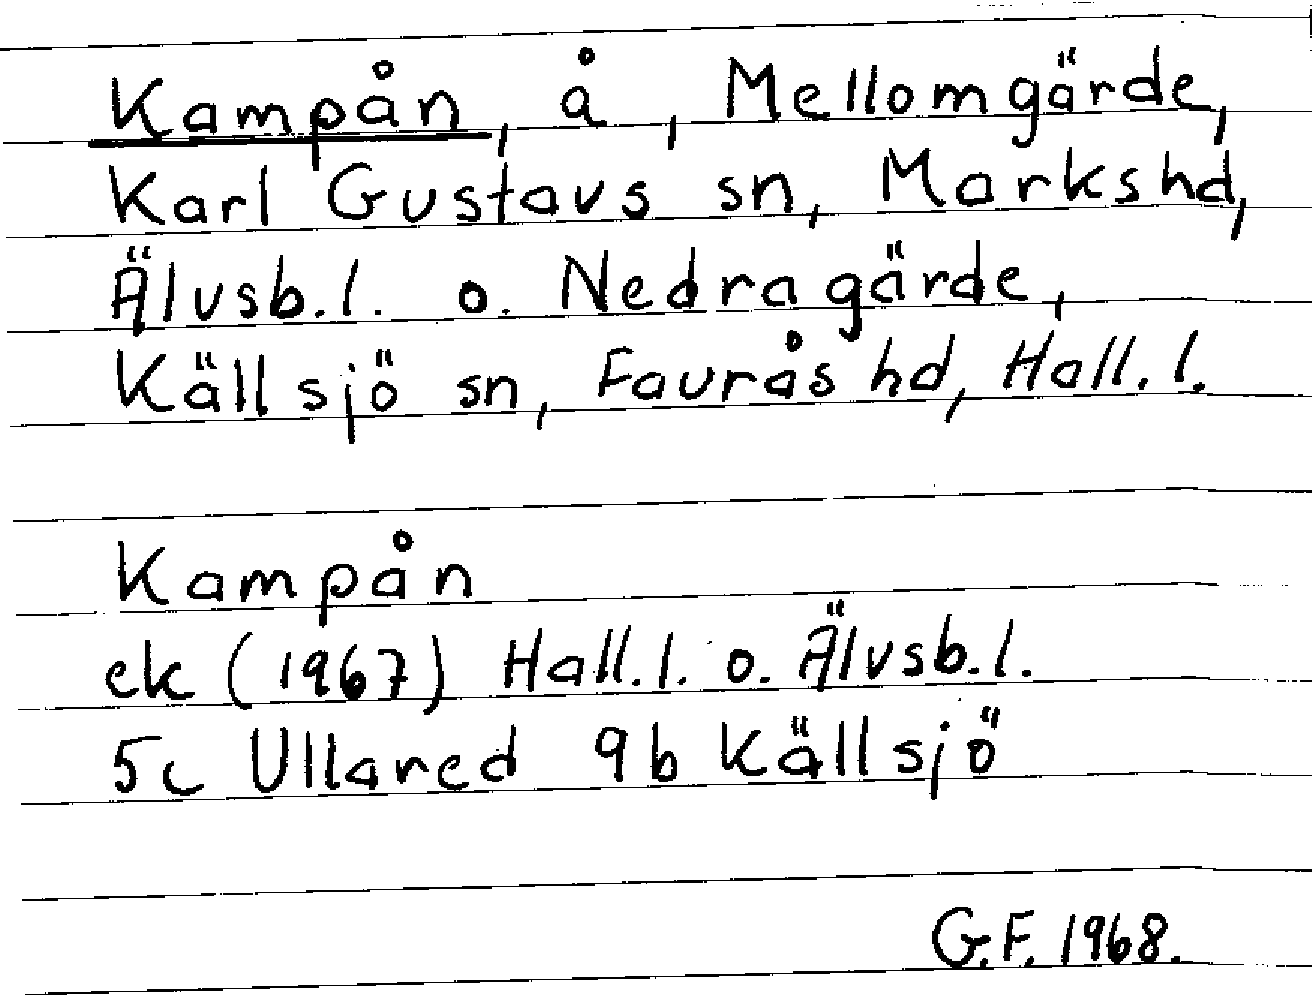 Kampån, å, Mellomgärde,
Karl Gustavs sn, Marks hd,
Älvsb.l. o. Nedragärde,
Källsjö sn, Faurås hd, Hall.l.
Kampån
ek (1967) Hall.l. o. Älvsb.l.
5c Ullared 9b Källsjö
G.F. 1968.